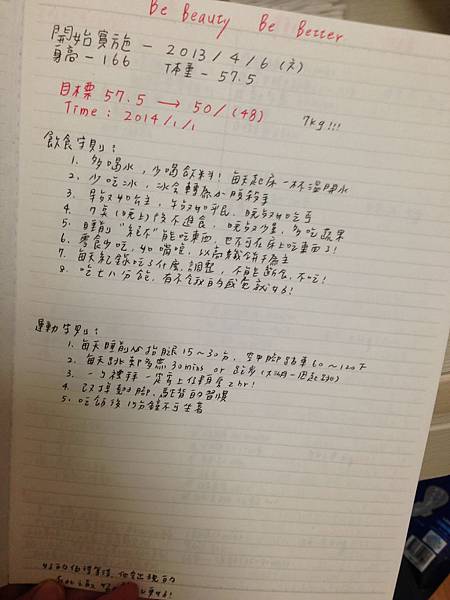 Be Beauty Be Better
開始實施 - 2013/4/6 (六)
身高 - 166 体重 - 57.5
目標 57.5 → 50/(48) 7kg!!!
Time : 2014/1/1
飲食守則 :
1. 多喝水，少喝飲料! 每天起床一杯溫開水
2. 少吃冰，冰食轉為
3. 早餐
4. 7點(晚上)後不進食，晚餐少量，多吃蔬果
5. 睡前"絕不"能吃東西，也不可在床上吃東西了!
6. 零食少吃，如嘴饞，以高纖餅干為主
7. 每天紀錄吃了什麼，調整，不能斷食，不吃!
8. 吃七八分飽，有不餓的感覺就好!
運動守則 :
1. 每天睡前抬腿15~30分，空中腳踏車60~120下
2. 每天跳鄭多燕30mins or 跑步
3. 一個禮拜一定要上健身房2hr!
4. 改掉翹腳、駝背的習慣
5. 吃飯後15分鐘不可坐著